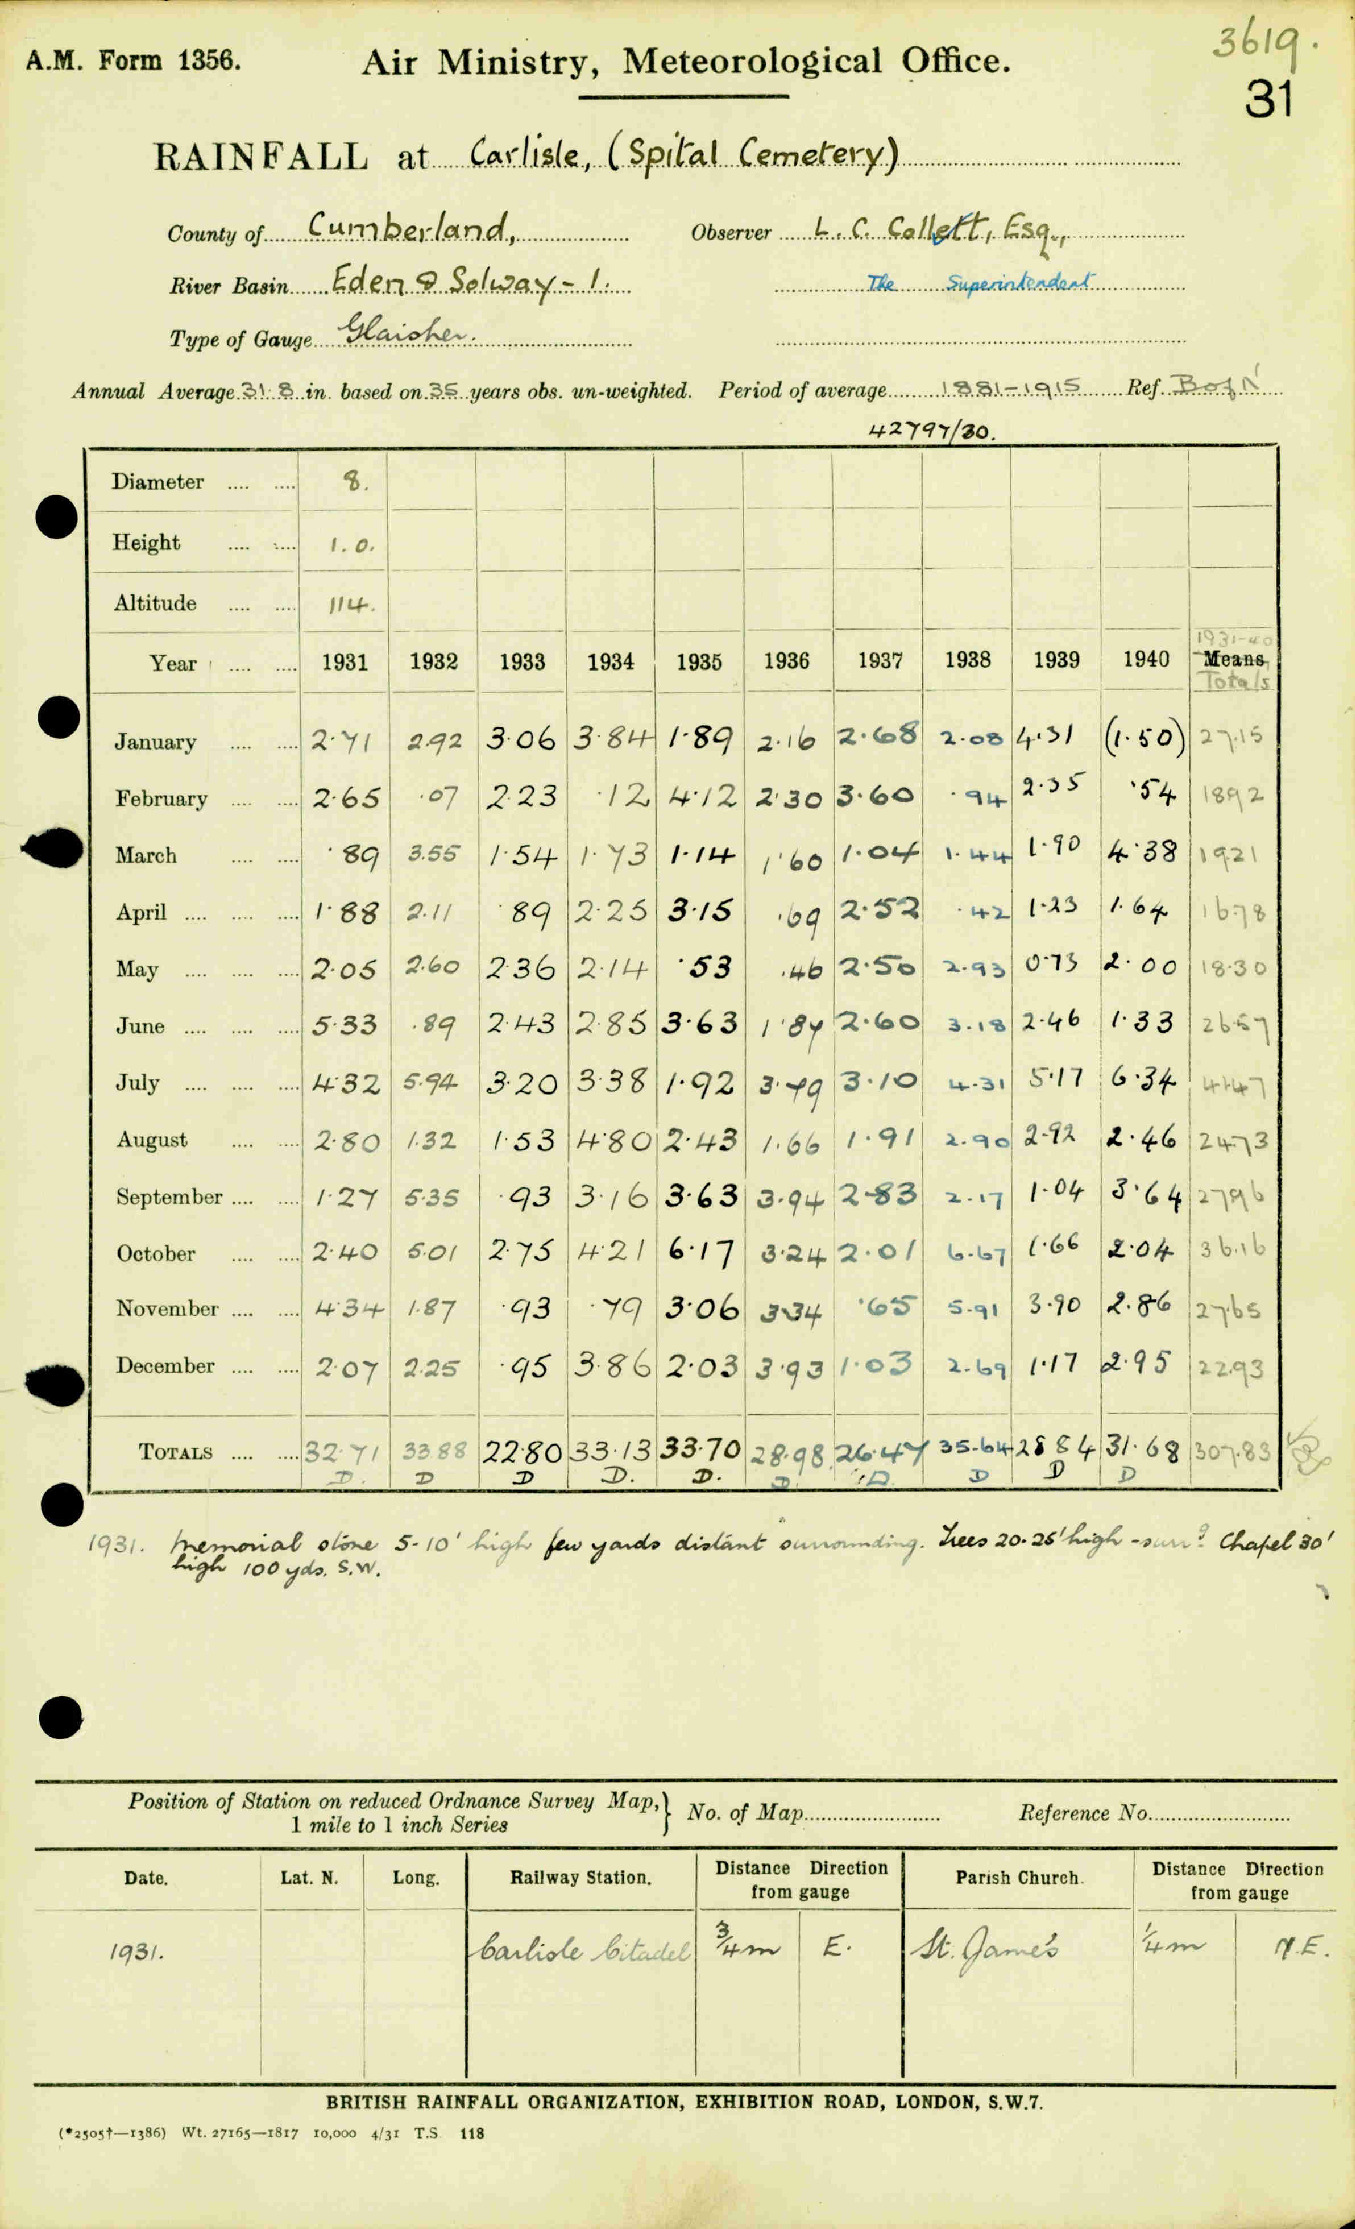 3619.
A.M. Form 1356. Air Ministry, Meteorological Office.
31
RAINFALL at Carlisle, (Spital Cemetery)
County of Cumberland, Observer L. C. Collett, Esq.,
River Basin Eden & Solway - 1. The Superintendent
Type of Gauge Glaisher.
Annual Average 31.8 in. based on 35 years obs. un-weighted. Period of average 1881-1915 Ref.
42797/30.
Diameter .... .... 8.
Height .... .... 1.0.
Altitude .... .... 114.
1931-40
Year .... .... 1931 1932 1933 1934 1935 1936 1937 1938 1939 1940 Means
Totals
January .... .... 2.71 2.92 3.06 3.84 1.89 2.16 2.68 2.08 4.31 (1.50) 27.15
February .... .... 2.65 .07 2.23 .12 4.12 2.30 3.60 .94 2.35 .54 18.92
March .... .... .89 3.55 1.54 1.73 1.14 1.60 1.04 1.44 1.90 4.38 19.21
April .... .... .... 1.88 2.11 .89 2.25 3.15 .69 2.52 .42 1.23 1.64 16.78
May .... .... .... 2.05 2.60 2.36 2.14 .53 .46 2.50 2.93 0.73 2.00 18.30
June .... .... .... 5.33 .89 2.43 2.85 3.63 1.87 2.60 3.18 2.46 1.33 26.57
July .... .... .... 4.32 5.94 3.20 3.38 1.92 3.79 3.10 4.31 5.17 6.34 41.47
August .... .... 2.80 1.32 1.53 4.80 2.43 1.66 1.91 2.90 2.92 2.46 24.73
September .... .... 1.27 5.35 .93 3.16 3.63 3.94 2.83 2.17 1.04 3.64 27.96
October .... .... 2.40 5.01 2.75 4.21 6.17 3.24 2.01 6.67 1.66 2.04 36.16
November .... .... 4.34 1.87 .93 .79 3.06 3.34 .65 5.91 3.90 2.86 27.65
December .... .... 2.07 2.25 .95 3.86 2.03 3.93 1.03 2.69 1.17 2.95 22.93
TOTALS .... .... 32.71 33.88 22.80 33.13 33.70 28.98 26.47 35.64 28.84 31.68 307.83
D. D D D. D. D. D. D D D
1931. Memorial stone 5-10' high few yards distant surrounding. Trees 20-25' high - Chapel 30'
high 100 yds. S.W.
Position of Station on reduced Ordnance Survey Map, } No. of Map Reference No.
1 mile to 1 inch Series
Date. Lat. N. Long. Railway Station. Distance Direction from gauge Parish Church. Distance Direction from gauge
1931. Carlisle Citadel 3/4 m E. St. James's 1/4 m N.E.
BRITISH RAINFALL ORGANIZATION, EXHIBITION ROAD, LONDON, S.W.7.
(*2505†—1386) Wt. 27165—1817 10,000 4/31 T.S. 118